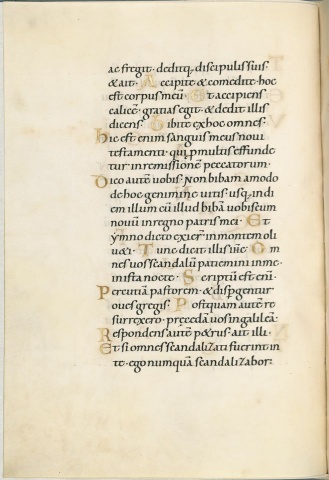 ac fregit· deditq; discipulis suis·
& ait· Accipite & comedite· hoc
est corpus meū· Et accipiens
calicē· gratias egit· & dedit illis
dicens· Bibite ex hoc omnes·
hic est enim sanguis meus noui
testamenti· qui p̱ multis effunde
tur in remissionē peccatorum·
Dico autē uobis· Non bibam amodo
de hoc genimine uitis· usq; in di
em illum cū illud bibā uobiscum
nouū in regno patris mei· Et
ẏmno dicto exier̄ in montem oli
u&i· Tunc dicit illis iħc· Om
nes uos scandalū patiemini in me·
in ista nocte· Scriptū est enī·
Percutiā pastorem· & disp̱gentur
oues gregis· Postquam autē re
surrexero· precedā uos in galileā·
Respondens autē p&rus· ait illi·
Et si omnes scandalizati fuerint in
te· ego numquā scandalizabor·